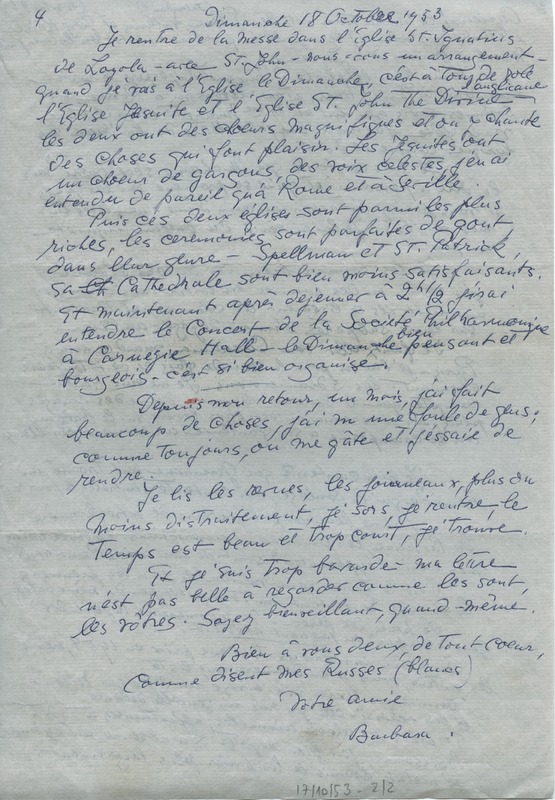 4
Dimanche 18 October 1953
Je rentre de la messe dans l'Eglise St. Ignatius
de Loyola - avec St. John - nous avons un arrangement -
quand je vais à l'Eglise le Dimanche, c'est à tour de role
anglicane
l'Eglise Jesuite et l'Eglise St. John The Divine
les deux ont des choeurs magnifiques et on chante
des choses qui font plaisir. Les Jesuites ont
un choeur de garçons, des voix celestes, j'en ai
entendu de pareil qu'à Rome et à Seville.
Puis ces deux églises sont parmi les plus
riches, les ceremonies sont parfaites de gout
dans leur genre - Spellman et St. Patrick,
sa Cathedrale sont bien moins satisfaisants.
Et maintenant après dejeuner à 2h 1/2 j'irai
entendre le Concert de la Société Philharmonique
à Carnegie Hall - le Dimanche bien pensant et
bourgeois - c'est si bien organisé.
Depuis mon retour, un mois, j'ai fait
beaucoup de choses, j'ai vu une foule de gens;
comme toujours, on me gâte et j'essaie de
rendre.
Je lis les revues, les journeaux, plus ou
moins distraitement, je sors, je rentre, le
Temps est beau et trop court, je trouve.
Et je suis trop bavarde - ma lettre
n'est pas belle à regarder comme les sont,
les vôtres. Soyez bienveillant, quand-même.
Bien à vous deux, de tout coeur,
comme disent mes Russes (blancs)
Votre amie
Barbara.
17/10/53 - 2/2